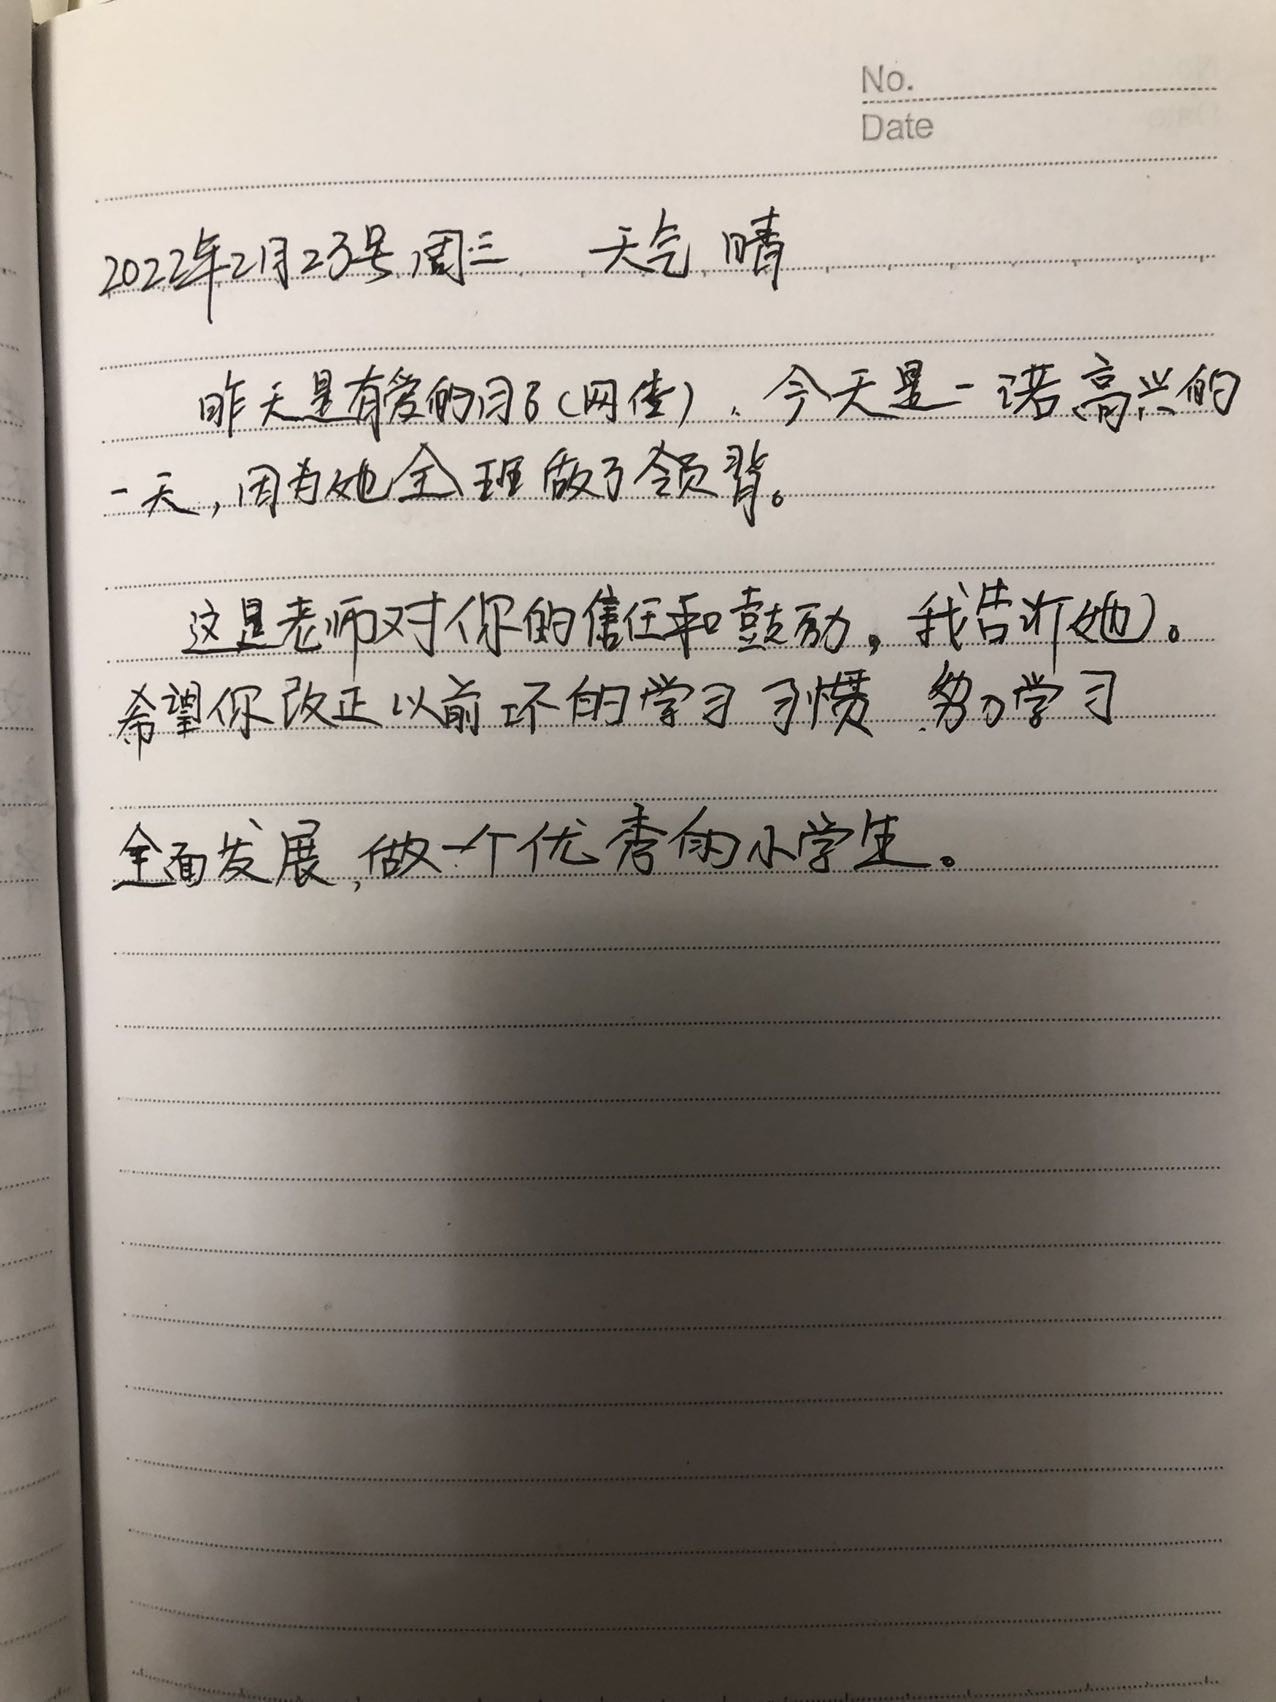 No.
Date
2022年2月23号周三 天气晴
昨天是有爱的日子(网传)、今天是一诺高兴的
一天,因为她全班做了领背。
这是老师对你的信任和鼓励,我告诉她)。
希望你改正以前坏的学习习惯 努力学习
全面发展,做一个优秀的小学生。